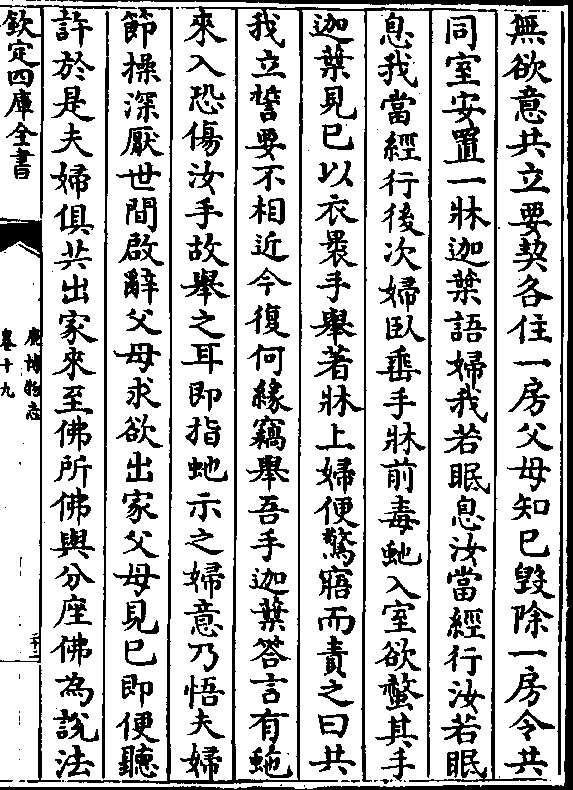 無欲意共立要契各住一房父母知已毀除一房令共
同室安置一牀迦葉語婦我若眠息汝當經行汝若眠
息我當經行後次婦臥垂手牀前毒虵入室欲螫其手
迦葉見已以衣褁手舉著牀上婦便驚寤而責之曰共
我立誓要不相近今復何緣竊舉吾手迦葉答言有虵
來入恐傷汝手故舉之耳即指虵示之婦意乃悟夫婦
節操深厭世間啟辭父母求欲出家父母見已即便聽
許於是夫婦俱共出家來至佛所佛與分座佛為說法
欽定四庫全書
廣博物志
卷十九